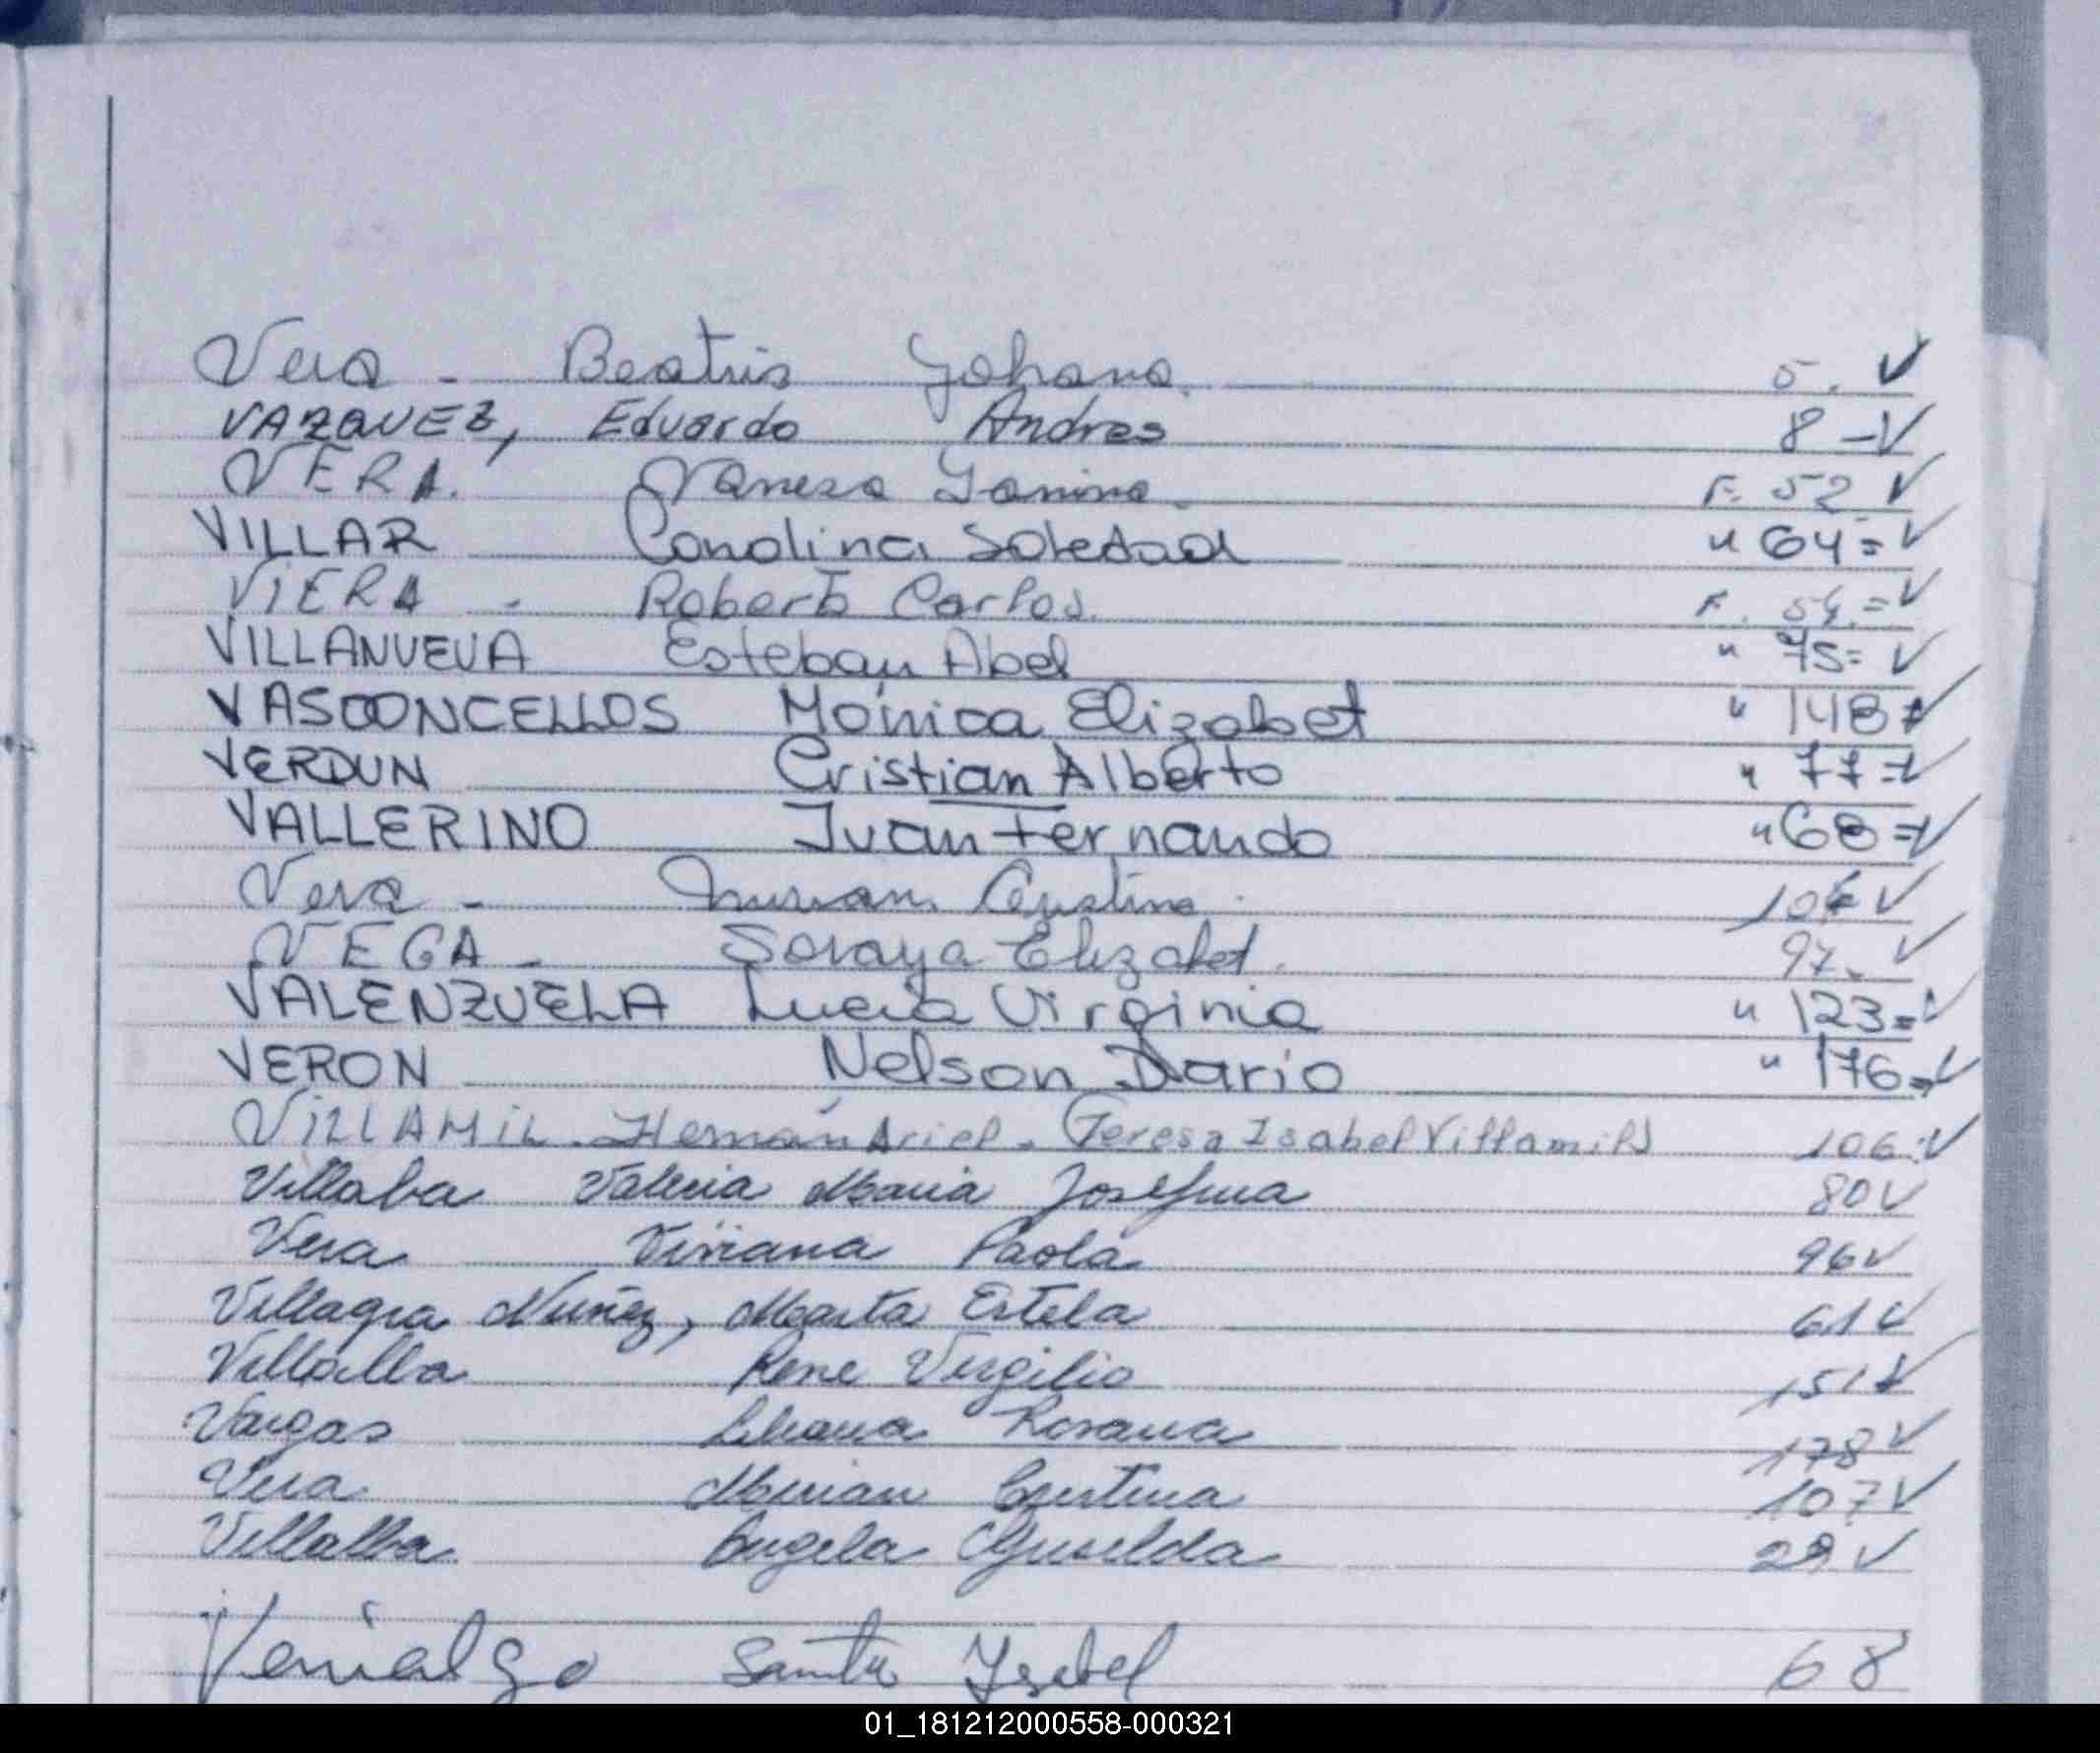 Vera - Beatris Johana. 5. ✓
VAZQUEZ, Eduardo Andres 8 - ✓
VERA. Vanesa Janina. F. 52 ✓
VILLAR Carolina Soledad " 64 = ✓
VIERA - Roberto Carlos. F. 54. = ✓
VILLANUEVA Esteban Abel " 75 = ✓
VASCONCELLOS Mónica Elizabet " 148 = ✓
VERDUN Cristian Alberto " 77 = ✓
VALLERINO Juan Fernando " 68 = ✓
Vera - Mirian Cristina. ✓
VEGA - Soraya Elizabet. 97. ✓
VALENZUELA Lucia Virginia " 123 = ✓
VERON Nelson Dario " 176 = ✓
VILLAMIL - Hernán Ariel - (Teresa Isabel Villamil) 106 ✓
Villaba Valeria Maria Josefina 80 ✓
Vera Viviana Paola 96 ✓
Villagra Nuñez, Marta Estela 61 ✓
Villalba Rene Virgilio 151 ✓
Vargas Liliana Rosana 178 ✓
Vera Mirian Cristina 107 ✓
Villalba Angela Griselda ✓
Venialgo Isabel 68
01_181212000558-000321